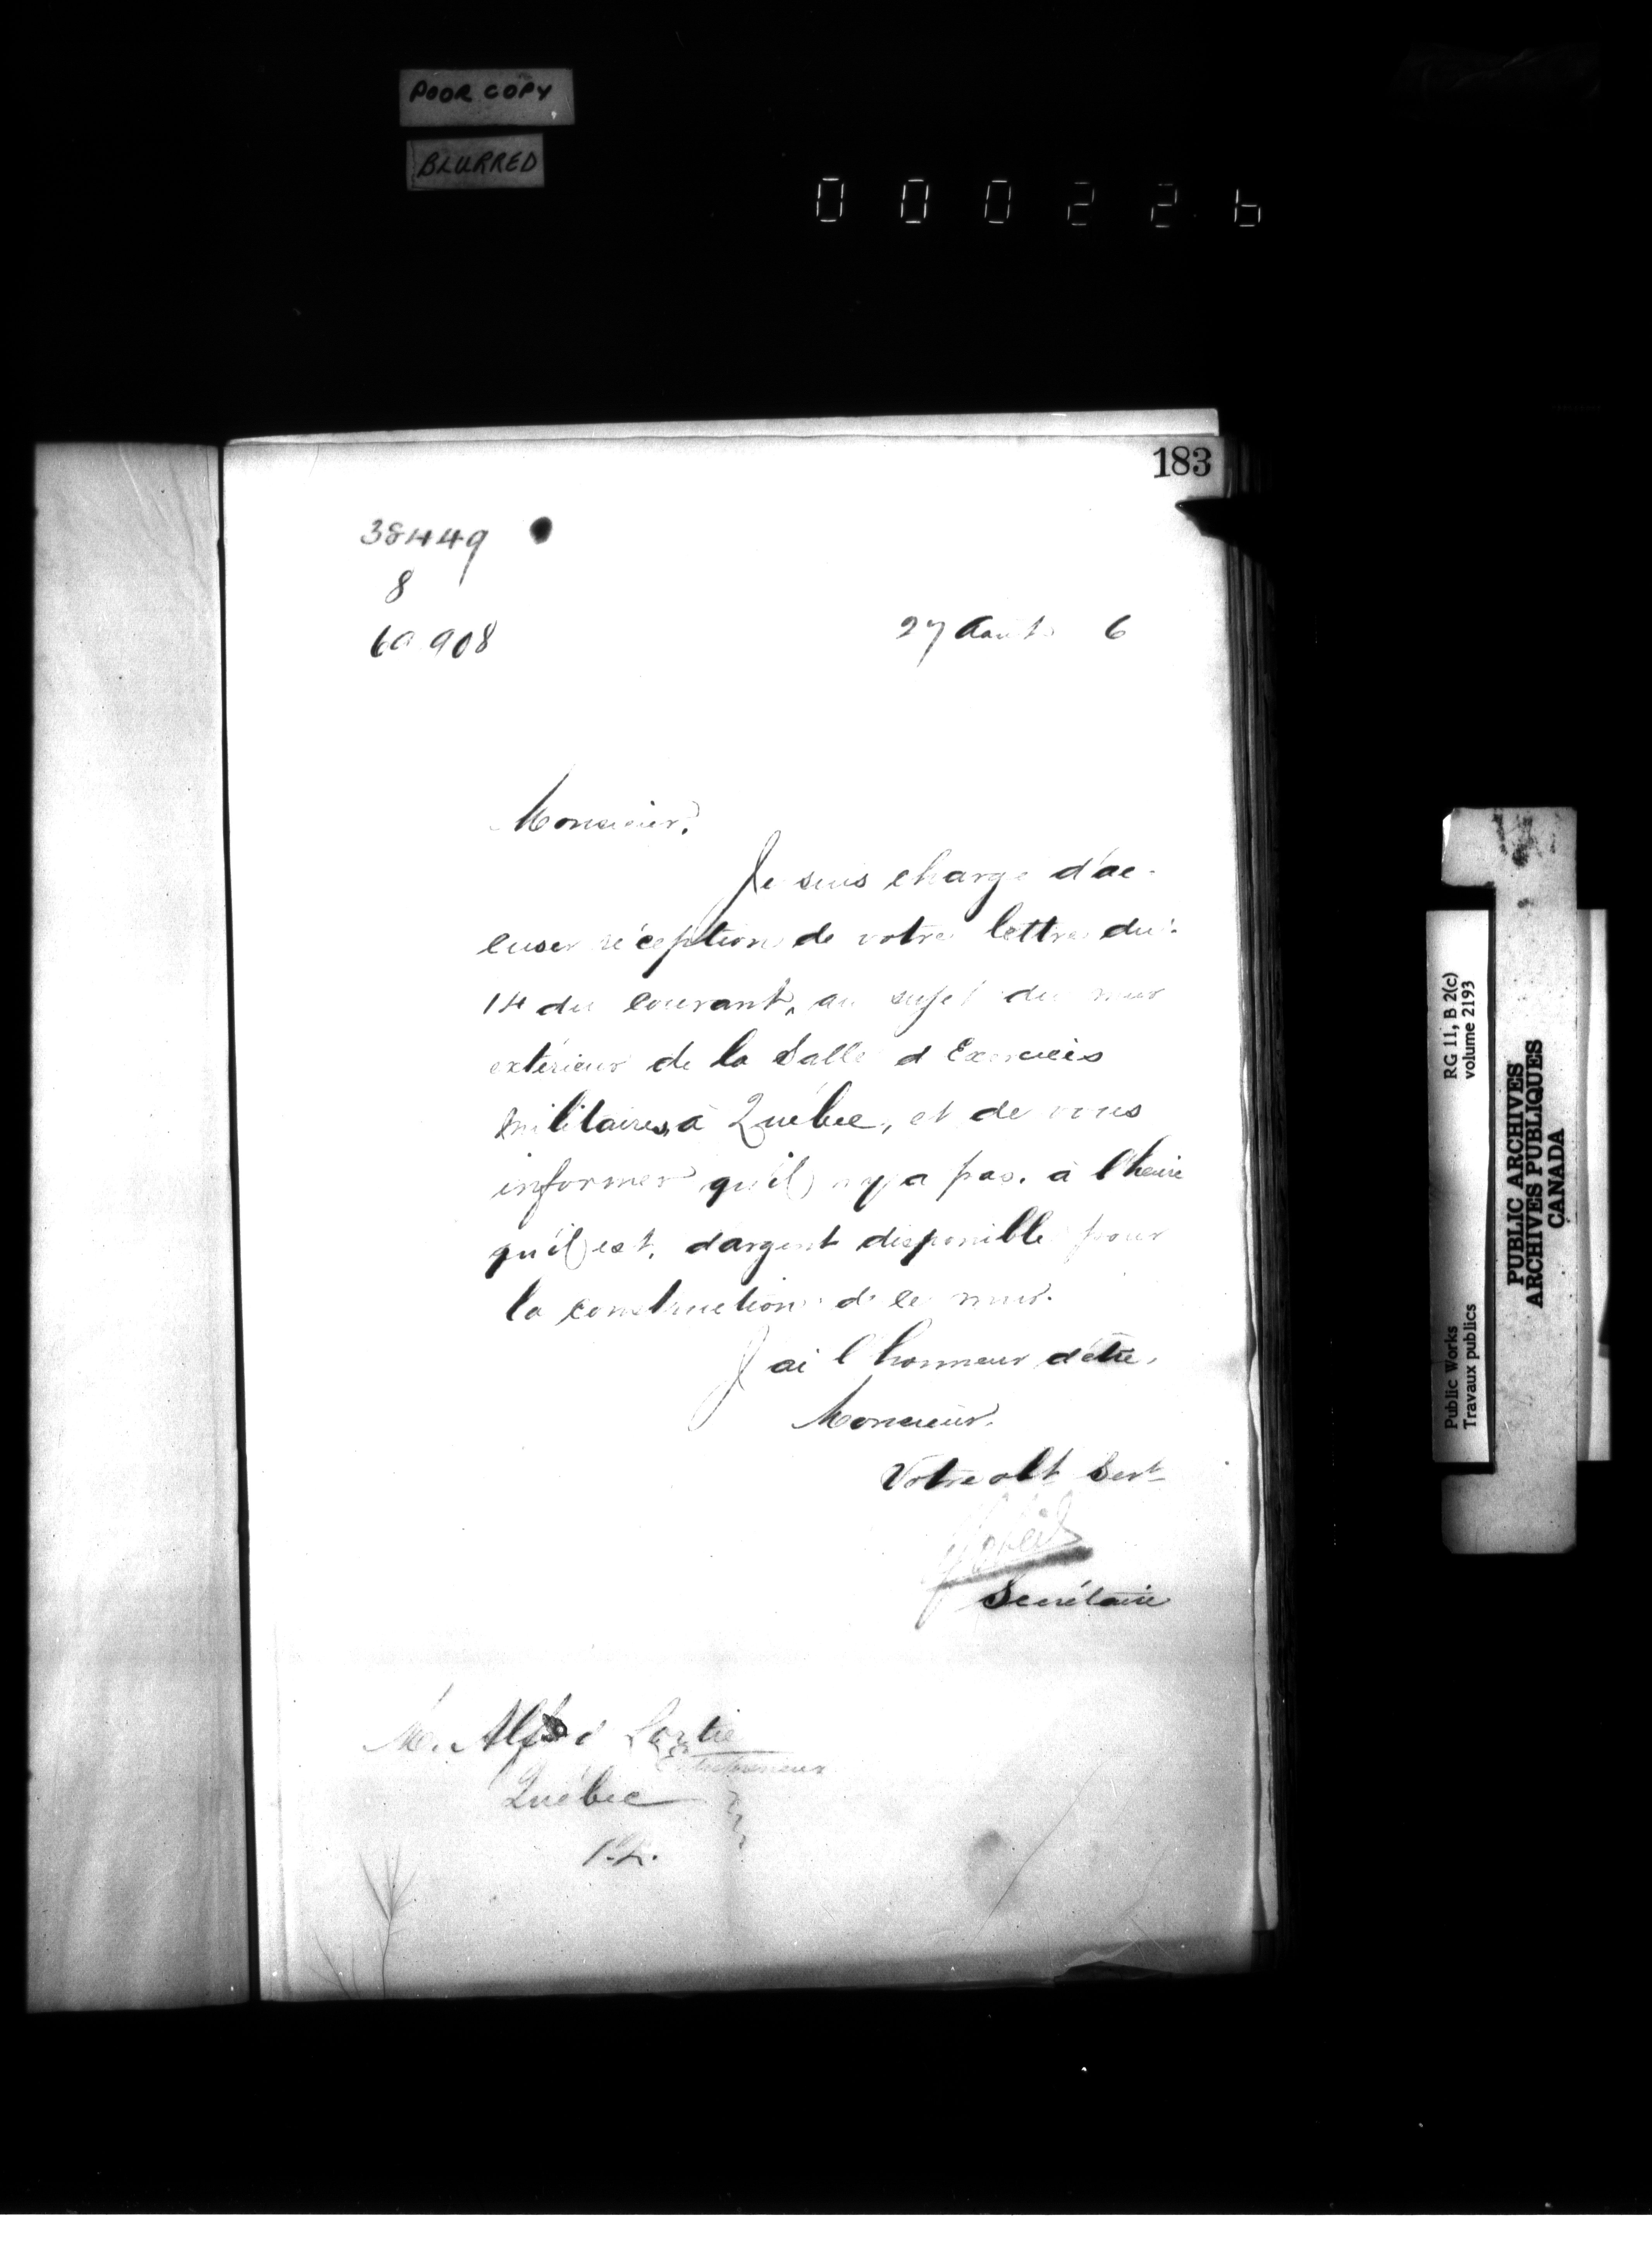 POOR COPY
BLURRED
000226
183
38449
8
60908
27 Août 6
Monsieur,
Je suis chargé d'ac-
cuser réception de votre lettre du
14 du courant, au sujet du mur
extérieur de la Salle d'Exercices
militaires, à Québec, et de vous
informer qu'il n'y a pas, à l'heure
qu'il est, d'argent disponible pour
la construction de ce mur.
J'ai l'honneur d'être,
Monsieur,
Votre obt Sert
Secrétaire
Mr. Alfred Lortie
Entrepreneur
Québec
RG 11, B 2(c)
volume 2193
Public Works
Travaux publics
PUBLIC ARCHIVES
ARCHIVES PUBLIQUES
CANADA